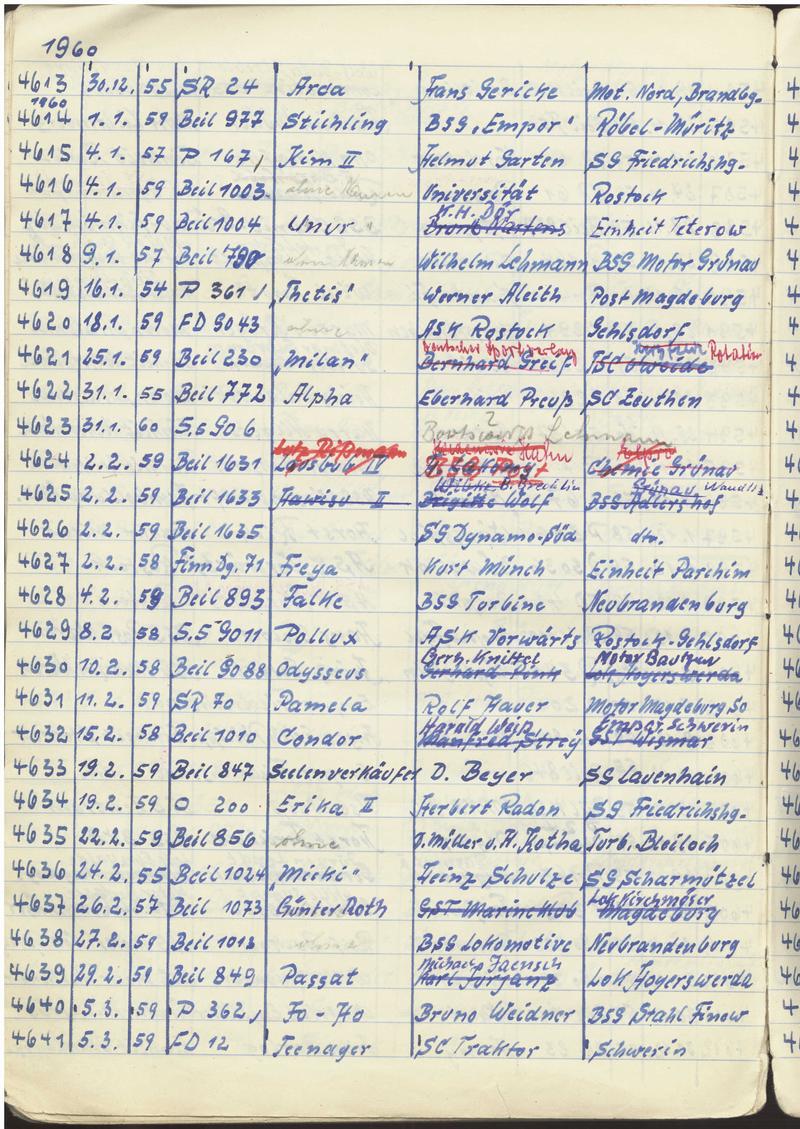 1960
4613 30.12. 55 SR 24 Arda Hans Gericke Mot. Nord, Brandbg.
1960
4614 1.1. 59 Beil 977 Stichling BSG „Empor" Röbel-Müritz
4615 4.1. 57 P 167 / Kim II Helmut Garten SG Friedrichshg.
4616 4.1. 59 Beil 1003 ohne Namen Universität Rostock
H.H. Dör
4617 4.1. 59 Beil 1004 Unur Einheit Teterow
4618 9.1. 57 Beil 790 ohne Namen Wilhelm Lehmann BSG Motor Grünau
4619 16.1. 54 P 361 / „Thetis" Werner Aleith Post Magdeburg
4620 18.1. 59 FD 9043 ohne ASK Rostock Gehlsdorf
Deutscher Sportverlag Rotation
4621 25.1. 59 Beil 230 „Milan" Bernhard Greif TSC
4622 31.1. 55 Beil 772 Alpha Eberhard Preuß SC Zeuthen
4623 31.1. 60 S.S 906 ? Lehmann
4624 2.2. 59 Beil 1631 Lausbub IV BSG Post Chemie Grünau
Grünau
4625 2.2. 59 Beil 1633 Hawisu II Brigitte Wolf BSG Adlershof
4626 2.2. 59 Beil 1635 SG Dynamo-Süd dto.
4627 2.2. 58 Finn Dg. 71 Freya Kurt Münch Einheit Parchim
4628 4.2. 59 Beil 893 Falke BSG Turbine Neubrandenburg
4629 8.2 58 S.S 9011 Pollux ASK Vorwärts Rostock-Gehlsdorf
Berh. Knittel Motor Bautzen
4630 10.2. 58 Beil 9088 Odysseus Gerhard Fink Lok Hoyerswerda
4631 11.2. 59 SR 70 Pamela Rolf Hauer Motor Magdeburg So
Harald Weiß Schwerin
4632 15.2. 58 Beil 1010 Condor Manfred Strey GST Wismar
4633 19.2. 59 Beil 847 Seelenverkäufer D. Beyer SG Lauenhain
4634 19.2. 59 O 200 Erika II Herbert Radon SG Friedrichshg.
4635 22.2. 59 Beil 856 ohne J. Müller u. H. Kotha Turb. Bleiloch
4636 24.2. 55 Beil 1024 „Micki" Heinz Schulze SG Scharmützel
Lok Kirchmöser
4637 26.2. 57 Beil 1073 Günter Roth GST Marineklub Magdeburg
4638 27.2. 59 Beil 1013 ohne BSG Lokomotive Neubrandenburg
Michael Jaensch
4639 29.2. 59 Beil 849 Passat Karl Lok Hoyerswerda
4640 5.3. 59 P 362 / Ho-Ho Bruno Weidner BSG Stahl Finow
4641 5.3. 59 FD 12 Teenager SC Traktor Schwerin